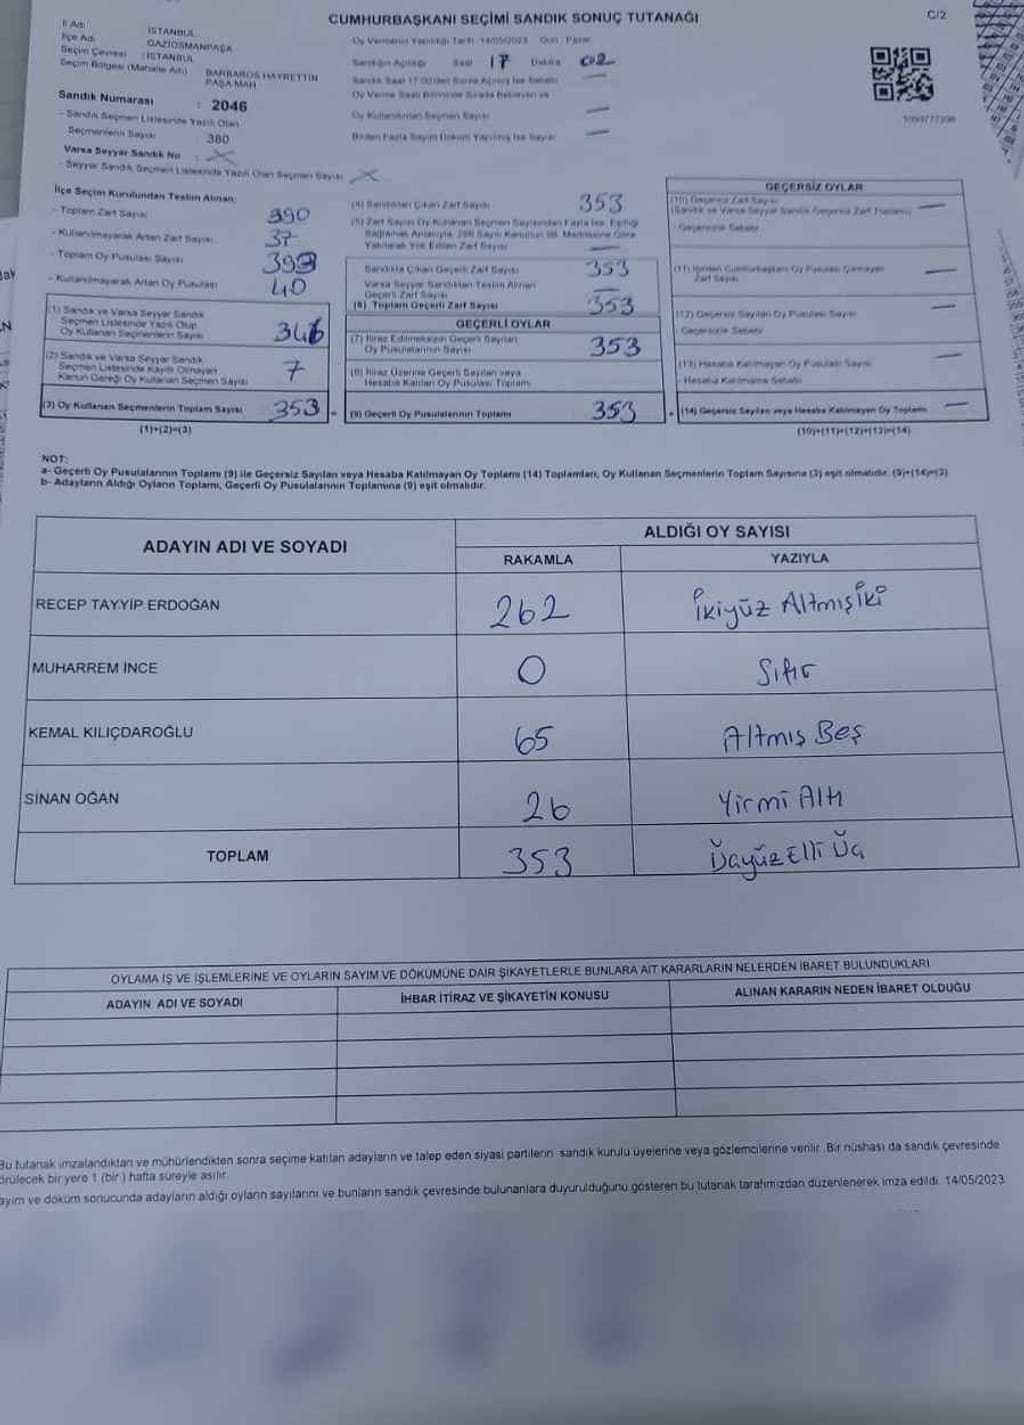 CUMHURBAŞKANI SEÇİMİ SANDIK SONUÇ TUTANAĞI
C/2
İl Adı İSTANBUL
İlçe Adı GAZİOSMANPAŞA
Seçim Çevresi : İSTANBUL
Seçim Bölgesi (Mahalle Adı) BARBAROS HAYRETTİN PAŞA MAH
Sandık Numarası : 2046
- Sandık Seçmen Listesinde Yazılı Olan
Seçmenlerin Sayısı 380
Varsa Seyyar Sandık No :
- Seyyar Sandık Seçmen Listesinde Yazılı Olan Seçmen Sayısı
Oy Vermenin Yapıldığı Tarih 14/05/2023 Gün Pazar
Sandığın Açıldığı Saat 17 Dakika 02
Oy Kullandırılan Seçmen Sayısı —
Birden Fazla Sayım Döküm Yapılmış İse Sayısı —
İlçe Seçim Kurulundan Teslim Alınan;
- Toplam Zarf Sayısı 390
- Kullanılmayarak Artan Zarf Sayısı 37
- Toplam Oy Pusulası Sayısı
- Kullanılmayarak Artan Oy Pusulası 40
(1) Sandık ve Varsa Seyyar Sandık
Seçmen Listesinde Yazılı Olup
Oy Kullanan Seçmenlerin Sayısı 346
(2) Sandık ve Varsa Seyyar Sandık
Seçmen Listesinde Kayıtlı Olmayan
Kanun Gereği Oy Kullanan Seçmen Sayısı 7
(3) Oy Kullanan Seçmenlerin Toplam Sayısı 353
(1)+(2)=(3)
(4) Sandıktan Çıkan Zarf Sayısı 353
(5) Zarf Sayısı Oy Kullanan Seçmen Sayısından Fazla İse, Eşitliği
Sağlamak Amacıyla, 298 Sayılı Kanunun 98. Maddesine Göre
Yakılarak Yok Edilen Zarf Sayısı —
Sandıkta Çıkan Geçerli Zarf Sayısı 353
Varsa Seyyar Sandıktan Teslim Alınan
Geçerli Zarf Sayısı —
(6) Toplam Geçerli Zarf Sayısı 353
GEÇERLİ OYLAR
(7) İtiraz Edilmeksizin Geçerli Sayılan
Oy Pusulalarının Sayısı 353
(8) İtiraz Üzerine Geçerli Sayılan veya
Hesaba Katılan Oy Pusulası Toplamı
(9) Geçerli Oy Pusulalarının Toplamı 353
GEÇERSİZ OYLAR
(10) Geçersiz Zarf Sayısı
(Sandık ve Varsa Seyyar Sandık Geçersiz Zarf Toplamı) —
- Geçersizlik Sebebi
(11) İçinden Cumhurbaşkanı Oy Pusulası Çıkmayan
Zarf Sayısı —
(12) Geçersiz Sayılan Oy Pusulası Sayısı —
- Geçersizlik Sebebi
(13) Hesaba Katılmayan Oy Pusulası Sayısı —
- Hesaba Katılmama Sebebi
(14) Geçersiz Sayılan veya Hesaba Katılmayan Oy Toplamı —
(10)+(11)+(12)+(13)=(14)
NOT:
a- Geçerli Oy Pusulalarının Toplamı (9) ile Geçersiz Sayılan veya Hesaba Katılmayan Oy Toplamı (14) Toplamları, Oy Kullanan Seçmenlerin Toplam Sayısına (3) eşit olmalıdır. (9)+(14)=(3)
b- Adayların Aldığı Oyların Toplamı, Geçerli Oy Pusulalarının Toplamına (9) eşit olmalıdır.
ADAYIN ADI VE SOYADI
ALDIĞI OY SAYISI
RAKAMLA YAZIYLA
RECEP TAYYİP ERDOĞAN 262 İkiyüz Altmışİki
MUHARREM İNCE 0 Sıfır
KEMAL KILIÇDAROĞLU 65 Altmış Beş
SİNAN OĞAN 26 Yirmi Altı
TOPLAM 353 Üçyüz Elli Üç
OYLAMA İŞ VE İŞLEMLERİNE VE OYLARIN SAYIM VE DÖKÜMÜNE DAİR ŞİKAYETLERLE BUNLARA AİT KARARLARIN NELERDEN İBARET BULUNDUKLARI
ADAYIN ADI VE SOYADI İHBAR İTİRAZ VE ŞİKAYETİN KONUSU ALINAN KARARIN NEDEN İBARET OLDUĞU
Bu tutanak imzalandıktan ve mühürlendikten sonra seçime katılan adayların ve talep eden siyasi partilerin sandık kurulu üyelerine veya gözlemcilerine verilir. Bir nüshası da sandık çevresinde
örülecek bir yere 1 (bir) hafta süreyle asılır.
ayım ve döküm sonucunda adayların aldığı oyların sayılarını ve bunların sandık çevresinde bulunanlara duyurulduğunu gösteren bu tutanak tarafımızdan düzenlenerek imza edildi. 14/05/2023